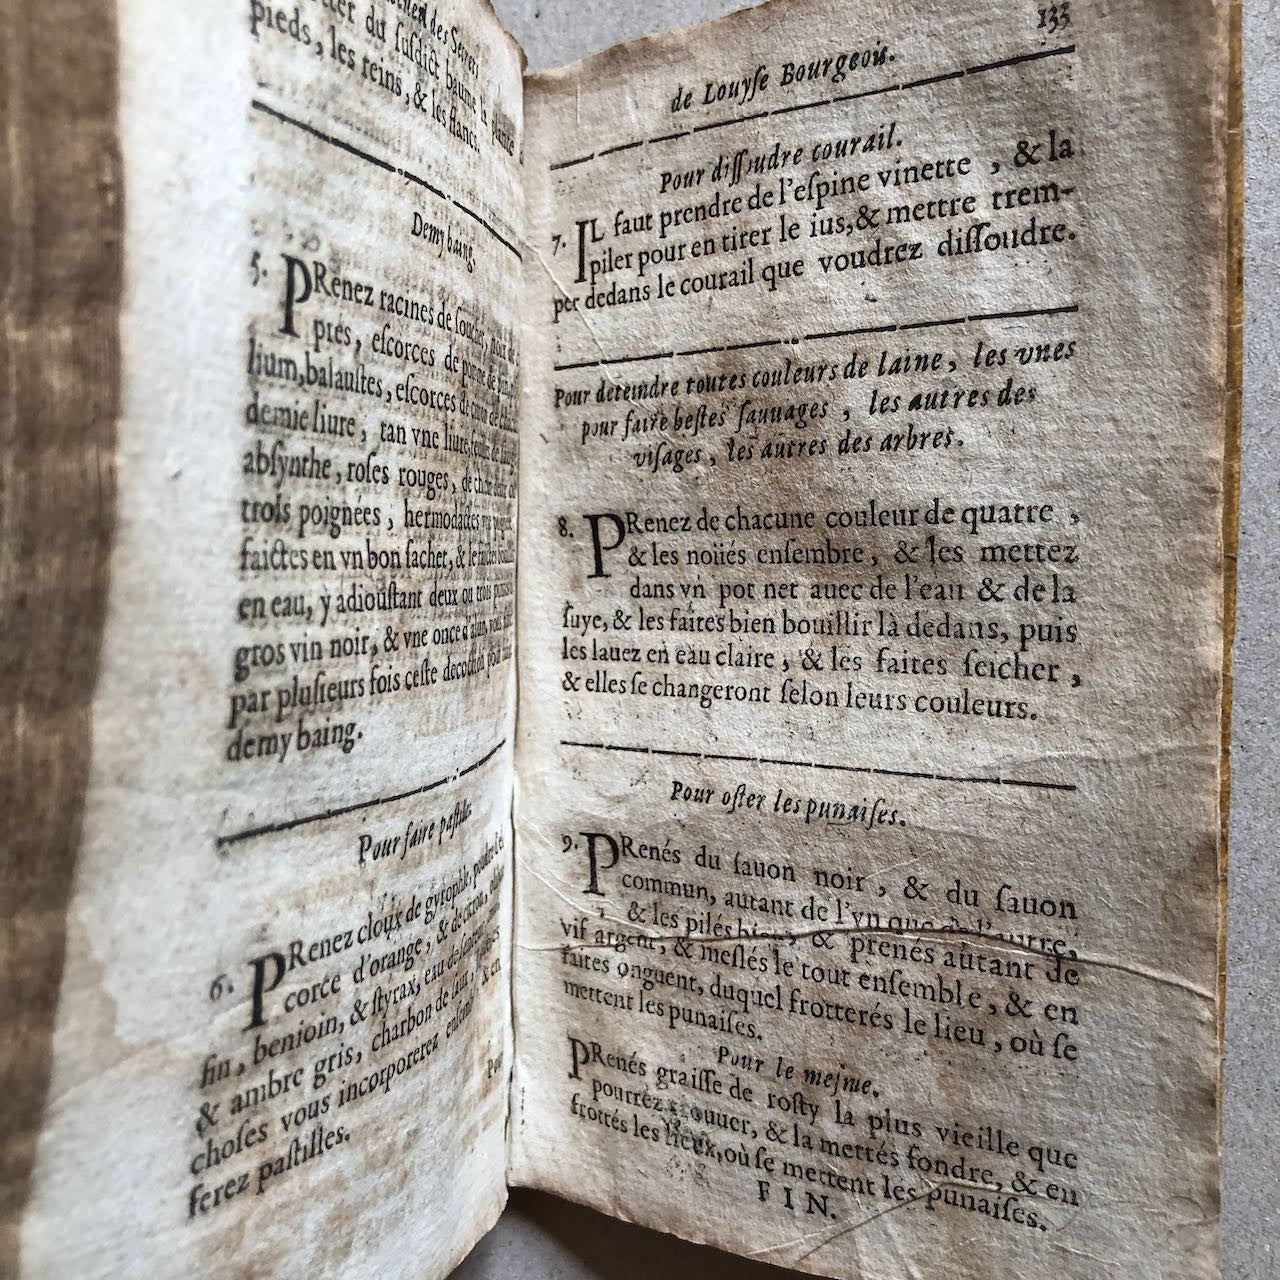 des Secrets
du ſuſdict baume la plante d
pieds, les reins, & les flancs.
Demy baing.
5. PRenez racines de ſouchet, noix de
pres, eſcorces de
lium, balauſtes, eſcorces de
demie liure, tan vne liure,
abſynthe, roſes rouges, de
trois poignées, hermodactes
faictes en vn bon ſachet, & le
en eau, y adiouſtant deux ou trois
gros vin noir, & vne once d'alun,
par pluſieurs fois ceſte decoction
demy baing.
Pour faire paſtilles.
6. PRenez cloux de gyrophle, poudre d'eſ
corce d'orange, & de citron,
fin, benioin, & ſtyrax, eau de
& ambre gris, charbon de
choſes vous incorporerez & en
ferez paſtilles.
Pour
133
de Louyſe Bourgeois.
Pour diſſoudre courail.
7. IL faut prendre de l'eſpine vinette, & la
piler pour en tirer le ius, & mettre trem-
per dedans le courail que voudrez diſſoudre.
Pour deteindre toutes couleurs de laine, les vnes
pour faire beſtes ſauuages, les autres des
viſages, les autres des arbres.
8. PRenez de chacune couleur de quatre,
& les noüés enſembre, & les mettez
dans vn pot net auec de l'eau & de la
ſuye, & les faites bien bouillir là dedans, puis
les lauez en eau claire, & les faites ſeicher,
& elles ſe changeront ſelon leurs couleurs.
Pour oſter les punaiſes.
9. PRenés du ſauon noir, & du ſauon
commun, autant de l'vn que de l'autre,
& les pilés bien, & prenés autant de
vif argent, & meſlés le tout enſemble, & en
faites onguent, duquel frotterés le lieu, où ſe
mettent les punaiſes.
Pour le meſme.
PRenés graiſſe de roſty la plus vieille que
pourrez trouuer, & la mettés fondre, & en
frottés les lieux, où ſe mettent les punaiſes.
FIN.